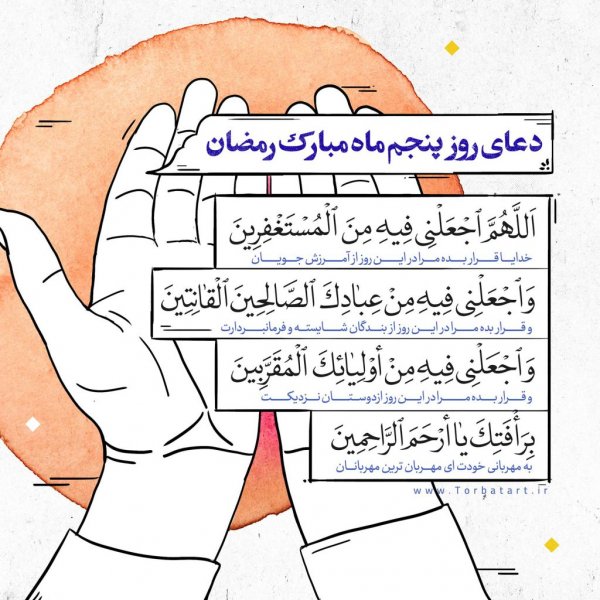 دعای روز پنجم ماه مبارک رمضان
اَللَّهُمَّ ٱجْعَلْنِی فِیهِ مِنَ ٱلْمُسْتَغْفِرِینَ
خدایا قرار بده مرا در این روز از آمرزش جویان
وَٱجْعَلْنِی فِیهِ مِنْ عِبَادِكَ ٱلصَّالِحِینَ ٱلْقَانِتِینَ
و قرار بده مرا در این روز از بندگان شایسته و فرمانبردارت
وَٱجْعَلْنِی فِیهِ مِنْ أَوْلِیَائِكَ ٱلْمُقَرَّبِینَ
و قرار بده مرا در این روز از دوستان نزدیکت
بِرَأْفَتِكَ یَا أَرْحَمَ ٱلرَّاحِمِینَ
به مهربانی خودت ای مهربان ترین مهربانان
www.Torbatart.ir